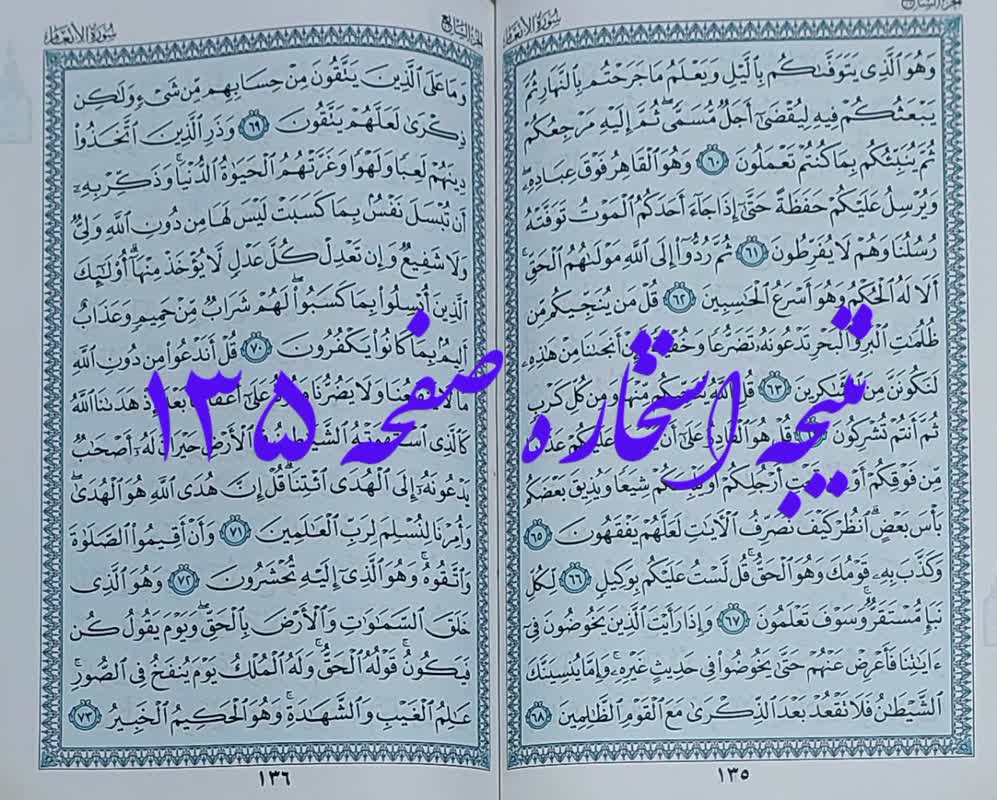 سُورَةُ الأَنْعَامِ
وَهُوَ ٱلَّذِى يَتَوَفَّىٰكُم بِٱلَّيْلِ وَيَعْلَمُ مَا جَرَحْتُم بِٱلنَّهَارِ ثُمَّ
يَبْعَثُكُمْ فِيهِ لِيُقْضَىٰٓ أَجَلٌ مُّسَمًّى ثُمَّ إِلَيْهِ مَرْجِعُكُمْ
ثُمَّ يُنَبِّئُكُم بِمَا كُنتُمْ تَعْمَلُونَ ٦٠ وَهُوَ ٱلْقَاهِرُ فَوْقَ عِبَادِهِۦ
وَيُرْسِلُ عَلَيْكُمْ حَفَظَةً حَتَّىٰٓ إِذَا جَآءَ أَحَدَكُمُ ٱلْمَوْتُ تَوَفَّتْهُ
رُسُلُنَا وَهُمْ لَا يُفَرِّطُونَ ٦١ ثُمَّ رُدُّوٓا۟ إِلَى ٱللَّهِ مَوْلَىٰهُمُ ٱلْحَقِّ
أَلَا لَهُ ٱلْحُكْمُ وَهُوَ أَسْرَعُ ٱلْحَٰسِبِينَ ٦٢ قُلْ مَن يُنَجِّيكُم مِّن
ظُلُمَٰتِ ٱلْبَرِّ وَٱلْبَحْرِ تَدْعُونَهُۥ تَضَرُّعًا وَخُفْيَةً لَّئِنْ أَنجَىٰنَا مِنْ هَٰذِهِۦ
لَنَكُونَنَّ مِنَ ٱلشَّٰكِرِينَ ٦٣ قُلِ ٱللَّهُ يُنَجِّيكُم مِّنْهَا وَمِن كُلِّ كَرْبٍ
ثُمَّ أَنتُمْ تُشْرِكُونَ ٦٤ قُلْ هُوَ ٱلْقَادِرُ عَلَىٰٓ أَن يَبْعَثَ عَلَيْكُمْ عَذَابًا
مِّن فَوْقِكُمْ أَوْ مِن تَحْتِ أَرْجُلِكُمْ أَوْ يَلْبِسَكُمْ شِيَعًا وَيُذِيقَ بَعْضَكُم
بَأْسَ بَعْضٍ ٱنظُرْ كَيْفَ نُصَرِّفُ ٱلْءَايَٰتِ لَعَلَّهُمْ يَفْقَهُونَ ٦٥
وَكَذَّبَ بِهِۦ قَوْمُكَ وَهُوَ ٱلْحَقُّ قُل لَّسْتُ عَلَيْكُم بِوَكِيلٍ ٦٦ لِّكُلِّ
نَبَإٍ مُّسْتَقَرٌّ وَسَوْفَ تَعْلَمُونَ ٦٧ وَإِذَا رَأَيْتَ ٱلَّذِينَ يَخُوضُونَ فِىٓ
ءَايَٰتِنَا فَأَعْرِضْ عَنْهُمْ حَتَّىٰ يَخُوضُوا۟ فِى حَدِيثٍ غَيْرِهِۦ وَإِمَّا يُنسِيَنَّكَ
ٱلشَّيْطَٰنُ فَلَا تَقْعُدْ بَعْدَ ٱلذِّكْرَىٰ مَعَ ٱلْقَوْمِ ٱلظَّٰلِمِينَ ٦٨
١٣٥
الجزء السابع
سُورَةُ الأَنْعَامِ
وَمَا عَلَى ٱلَّذِينَ يَتَّقُونَ مِنْ حِسَابِهِم مِّن شَىْءٍ وَلَٰكِن
ذِكْرَىٰ لَعَلَّهُمْ يَتَّقُونَ ٦٩ وَذَرِ ٱلَّذِينَ ٱتَّخَذُوا۟
دِينَهُمْ لَعِبًا وَلَهْوًا وَغَرَّتْهُمُ ٱلْحَيَوٰةُ ٱلدُّنْيَا وَذَكِّرْ بِهِۦٓ
أَن تُبْسَلَ نَفْسٌۢ بِمَا كَسَبَتْ لَيْسَ لَهَا مِن دُونِ ٱللَّهِ وَلِىٌّ
وَلَا شَفِيعٌ وَإِن تَعْدِلْ كُلَّ عَدْلٍ لَّا يُؤْخَذْ مِنْهَآ أُو۟لَٰٓئِكَ
ٱلَّذِينَ أُبْسِلُوا۟ بِمَا كَسَبُوا۟ لَهُمْ شَرَابٌ مِّنْ حَمِيمٍ وَعَذَابٌ
أَلِيمٌۢ بِمَا كَانُوا۟ يَكْفُرُونَ ٧٠ قُلْ أَنَدْعُوا۟ مِن دُونِ ٱللَّهِ
مَا لَا يَنفَعُنَا وَلَا يَضُرُّنَا وَنُرَدُّ عَلَىٰٓ أَعْقَابِنَا بَعْدَ إِذْ هَدَىٰنَا ٱللَّهُ
كَٱلَّذِى ٱسْتَهْوَتْهُ ٱلشَّيَٰطِينُ فِى ٱلْأَرْضِ حَيْرَانَ لَهُۥٓ أَصْحَٰبٌ
يَدْعُونَهُۥٓ إِلَى ٱلْهُدَى ٱئْتِنَا قُلْ إِنَّ هُدَى ٱللَّهِ هُوَ ٱلْهُدَىٰ
وَأُمِرْنَا لِنُسْلِمَ لِرَبِّ ٱلْعَٰلَمِينَ ٧١ وَأَنْ أَقِيمُوا۟ ٱلصَّلَوٰةَ
وَٱتَّقُوهُ وَهُوَ ٱلَّذِىٓ إِلَيْهِ تُحْشَرُونَ ٧٢ وَهُوَ ٱلَّذِى
خَلَقَ ٱلسَّمَٰوَٰتِ وَٱلْأَرْضَ بِٱلْحَقِّ وَيَوْمَ يَقُولُ كُن
فَيَكُونُ قَوْلُهُ ٱلْحَقُّ وَلَهُ ٱلْمُلْكُ يَوْمَ يُنفَخُ فِى ٱلصُّورِ
عَٰلِمُ ٱلْغَيْبِ وَٱلشَّهَٰدَةِ وَهُوَ ٱلْحَكِيمُ ٱلْخَبِيرُ ٧٣
١٣٦
نتیجه استخاره صفحه ۱۳۵